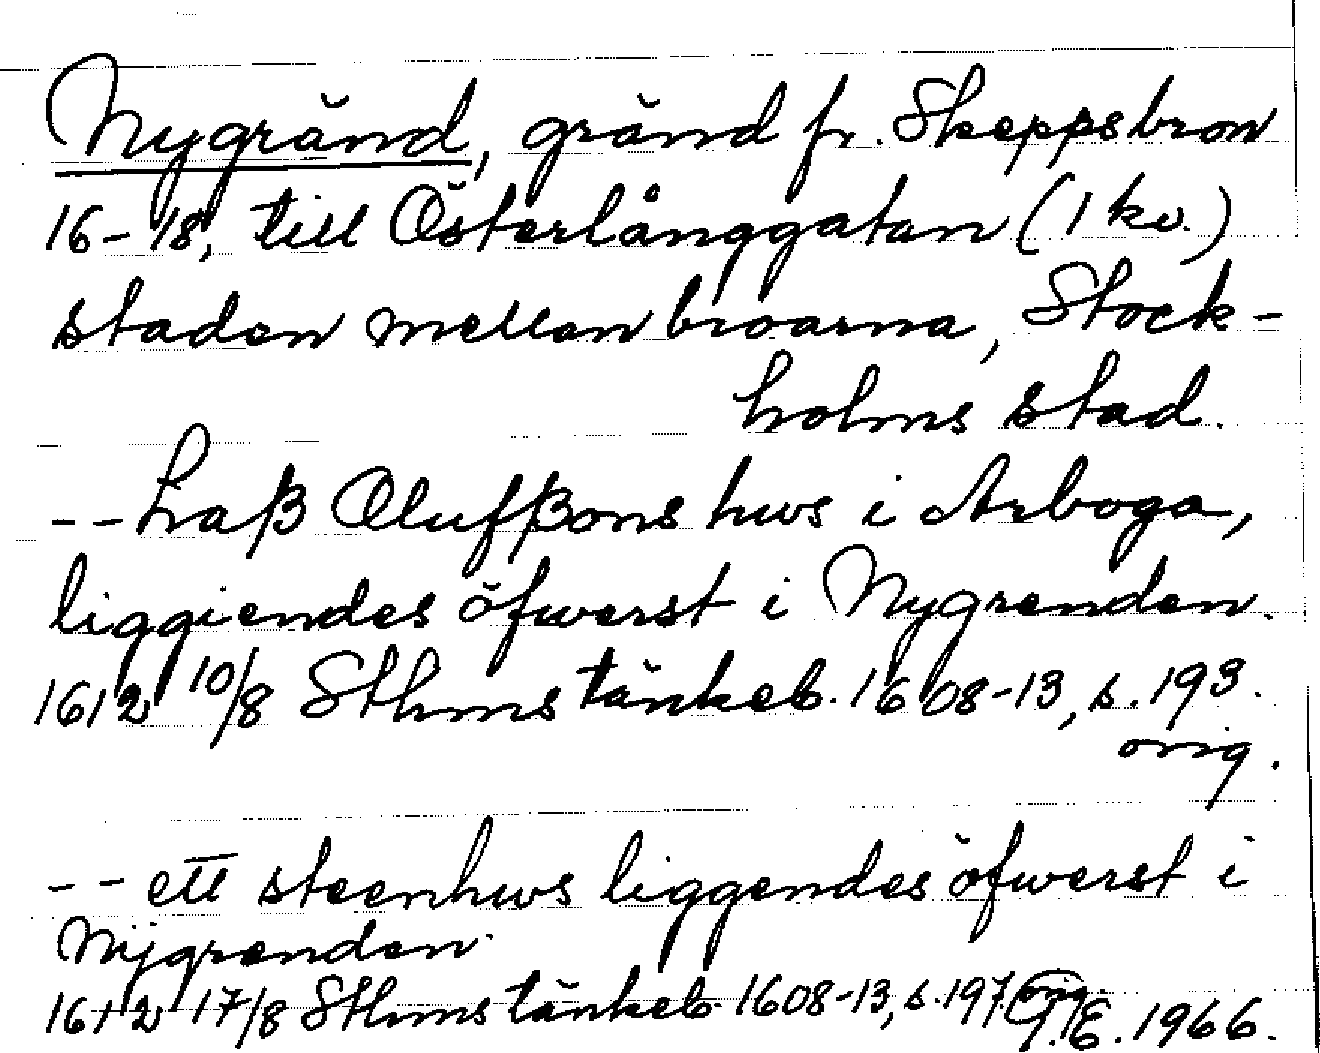 Nygränd, gränd fr. Skeppsbron
16-18, till Österlånggatan (1 kv.)
staden mellan broarna, Stock-
holms stad.
-- Laß Olufßons hws i Arboga,
liggiendes öfwerst i Nygrenden.
1612 10/8 Sthms tänkeb. 1608-13, s. 193.
orig.
-- ett steenhws liggendes öfwerst i
Nijgrenden.
1612 17/8 Sthms tänkeb. 1608-13, s. 197. orig.
1966.